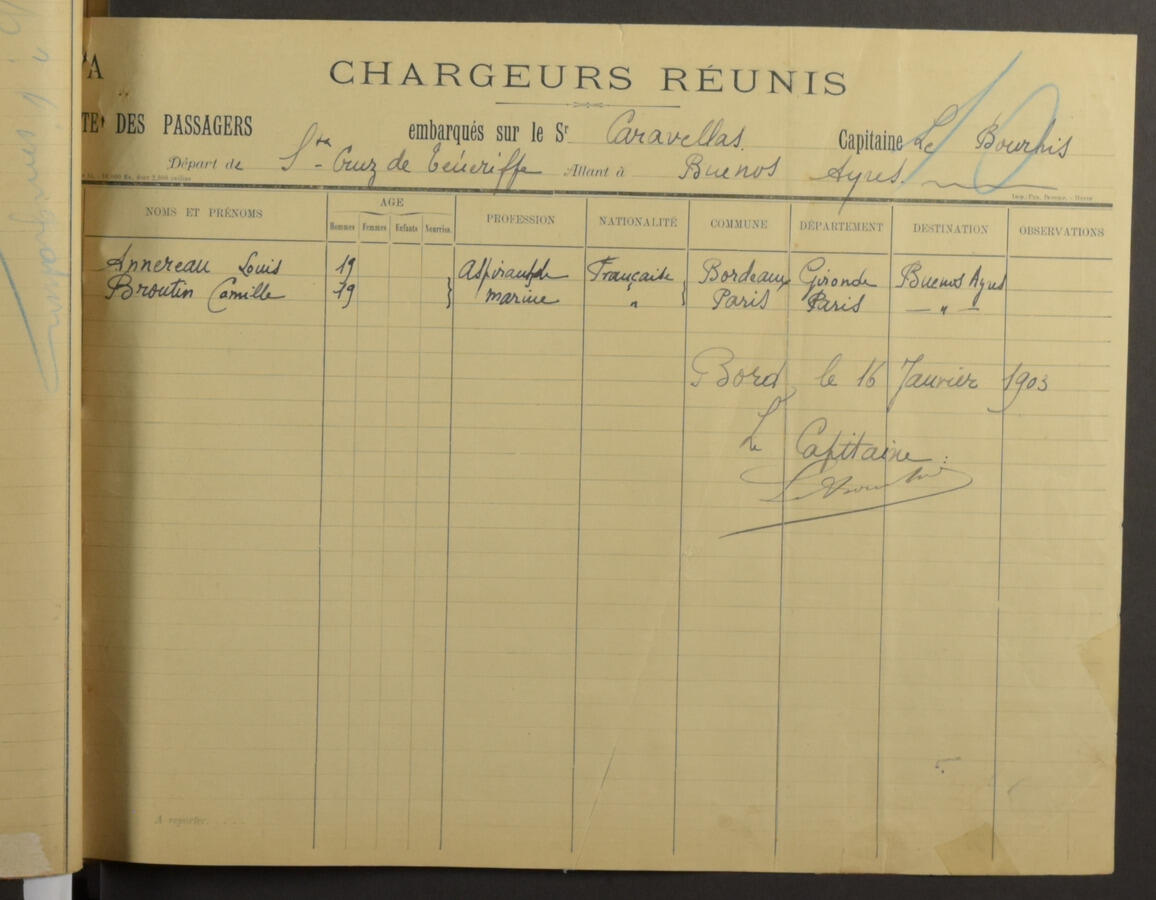 A
CHARGEURS RÉUNIS
TE DES PASSAGERS embarqués sur le Sr Caravellas. Capitaine Le Bourhis
Départ de Sta Cruz de Ténériffe Allant à Buenos Ayres.
10
NOMS ET PRÉNOMS AGE PROFESSION NATIONALITÉ COMMUNE DÉPARTEMENT DESTINATION OBSERVATIONS
Hommes Femmes Enfants Nourriss.
Annereau Louis 19 Aspirant de Française Bordeaux Gironde Buenos Ayres
Broutin Camille 19 } marine " } Paris Paris — " —
Bord, le 16 Janvier 1903
Le Capitaine :
Le Bourhis
A reporter. . . . .